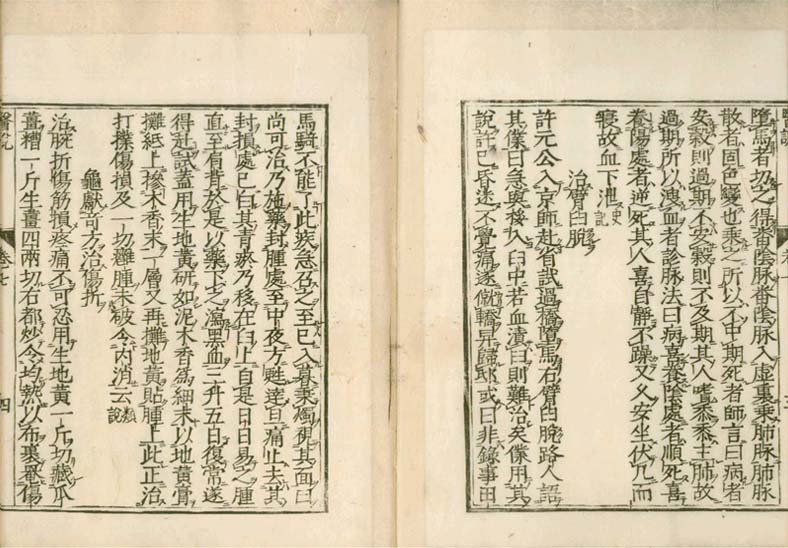 墮馬者切之得番陰脉番陰脉入虛裏乘肺脉肺脉
散者固色變也乘之所以不中期死者師言曰病者
安穀則過期不安穀則不及期其人嗜黍黍主肺故
過期所以溲血者診脉法曰病喜養陰處者順死喜
養陽處者逆死其人喜自靜不躁又乆安坐伏几而
寐故血下泄史記
治臂臼脫
許元公入京師赴省試過橋墮馬右臂臼脫路人語
其僕曰急與挼入臼中若血漬臼則難治矣僕用其
說許已昏迷不覺痛遂僦轎舁歸邸或曰非錄事田
馬騎不能了此疾急召之至已入暮秉燭視其面曰
尚可治乃施藥封腫處至中夜方甦達旦痛止去其
封損處已白其青瘀乃移在臼上自是日日易之腫
直至肩背於是以藥下之瀉黑血三升五日復常遂
得赴試蓋用生地黃研如泥木香爲細末以地黃膏
攤紙上摻木香末一層又再攤地黃貼腫上此正治
打撲傷損及一切癰腫未破令內消云類說
龜獻奇方治傷折
治腕折傷筋損疼痛不可忍用生地黃一斤切藏瓜
薑糟一斤生薑四兩切右都炒令均熱以布裹罨傷
醫說
卷七
四